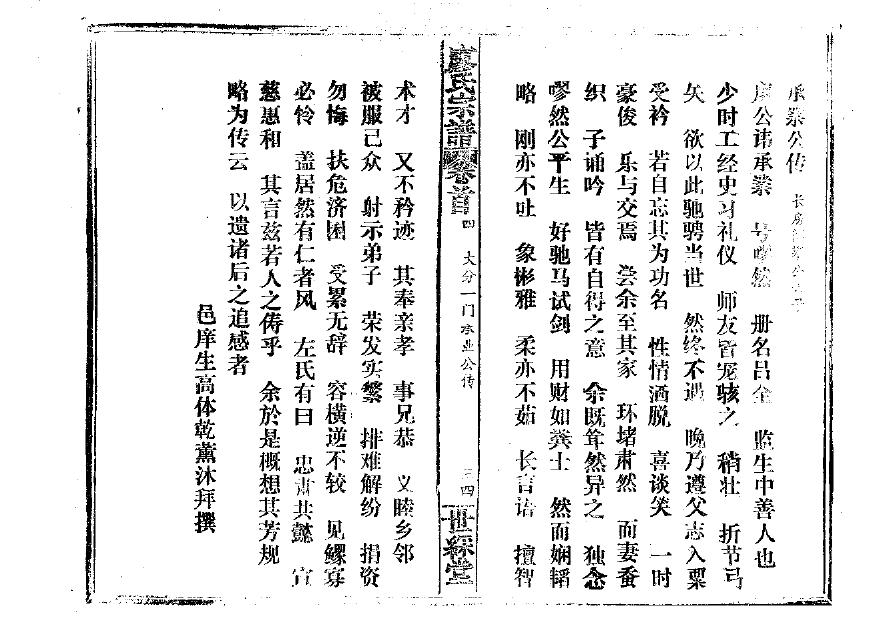 承業公传 长房
公讳承業 号嘐然 册名吕全 监生中善人也
少时工经史习礼仪 师友皆宠骇之 稍壮 折节弓
矢 欲以此驰骋当世 然终不遇 晚乃遵父志入粟
受衿 若自忘其为功名 性情洒脱 喜谈笑 一时
豪俊 乐与交焉 尝余至其家 环堵肃然 而妻蚕
织 子诵吟 皆有自得之意 余既耸然异之 独念
嘐然公平生 好驰马试剑 用财如粪土 然而娴韬
略 刚亦不吐 象彬雅 柔亦不茹 长言语 擅智
氏宗譜 卷首 四 大分一门承业公传 三四 世綵堂
术才 又不矜迹 其奉亲孝 事兄恭 义睦乡邻
被服己众 射示弟子 荣发实繁 排难解纷 捐资
勿悔 扶危济困 受累无辞 容横逆不较 见鳏寡
必怜 盖居然有仁者风 左氏有曰 忠肃共懿 宣
慈惠和 其言兹若人之俦乎 余於是概想其芳规
略为传云 以遗诸后之追感者
邑庠生高体乾薰沐拜撰